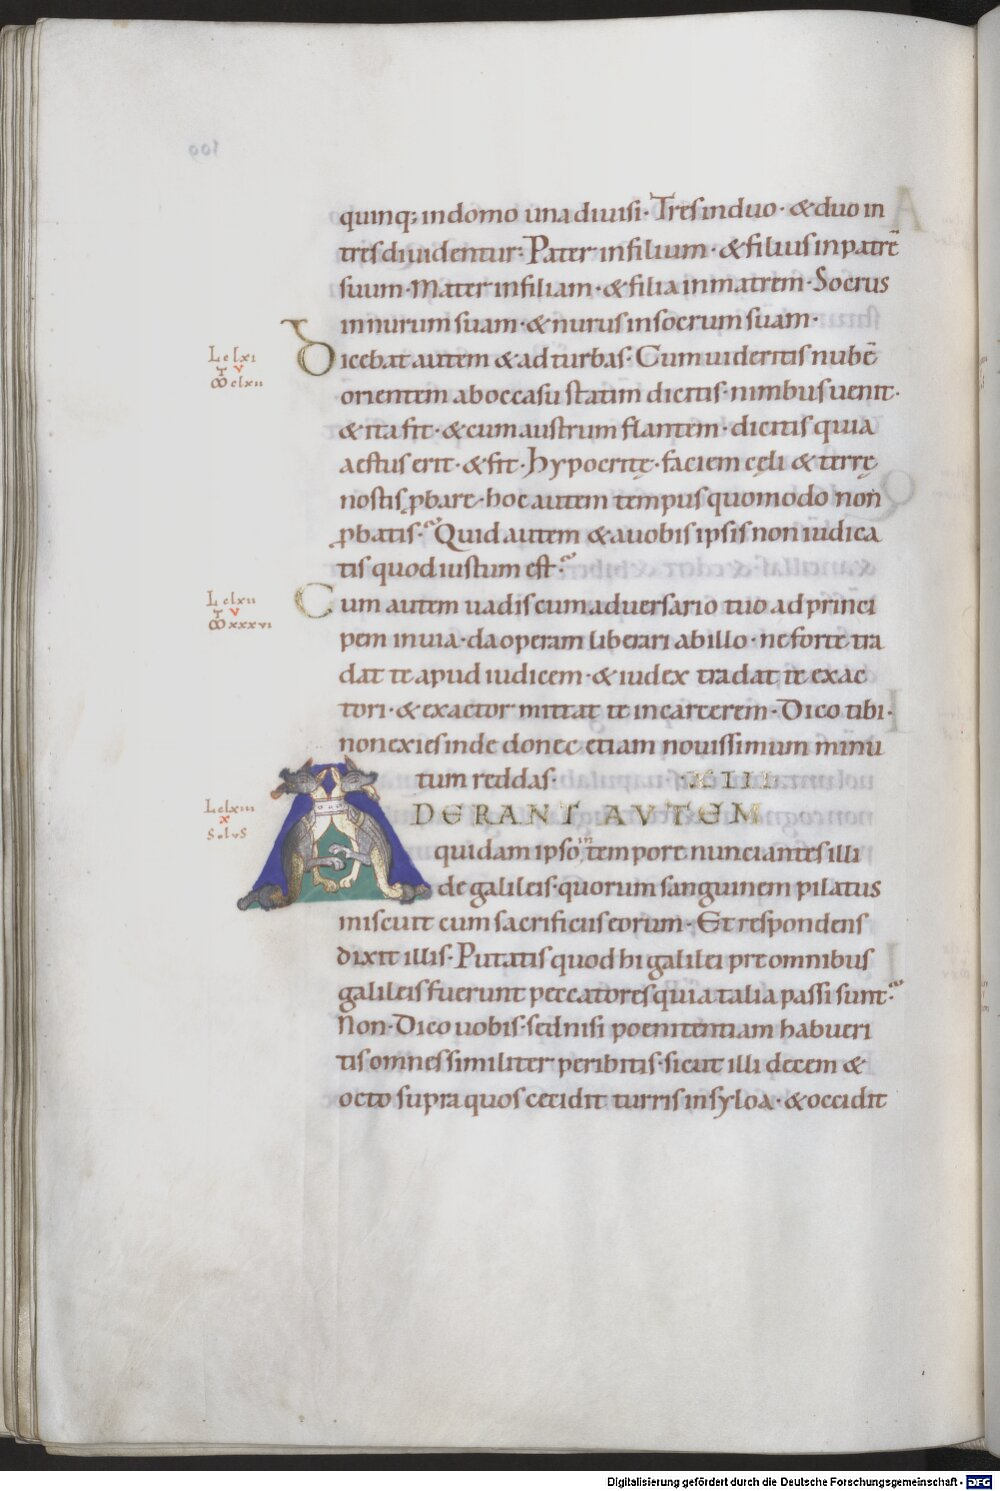 quinq; in domo una diuisi · Tres in duo · & duo in
tres diuidentur: Pater in filium · & filius in patrē
suum · Mater in filiam · & filia in matrem · Socrus
in nurum suam · & nurus in socrum suam ·
Dicebat autem & ad turbas: Cum uideritis nubē
L clxi
V
M clxii
orientem ab occasu statim dicitis · nimbus uenit ·
& ita fit · & cum austrum flantem · dicitis quia
aestus erit · & fit · Hypocritę · faciem cęli & terrę
nostis ꝓbare · hoc autem tempus quomodo non
ꝓbatis? Quid autem & a uobis ipsis non iudica
tis quod iustum est?
Cum autem uadis cum aduersario tuo ad princi
L clxii
V
M xxxvi
pem in uia · da operam liberari ab illo · ne forte tra
dat te apud iudicem · & iudex tradat te exac
tori · & exactor mittat te in carcerem · Dico tibi ·
non exies inde donec etiam nouissimum minu
tum reddas · XIIII
ADERANT AVTEM
L clxiii
X
Solus
quidam ipso in tempore nunciantes illi
de galileis · quorum sanguinem pilatus
miscuit cum sacrificiis eorum · Et respondens
dixit illis · Putatis quod hi galilei pre omnibus
galileis fuerunt peccatores quia talia passi sunt?
Non · Dico uobis · sed nisi poenitentiam habueri
tis omnes similiter peribitis · sicut illi decem &
octo supra quos cecidit turris in syloa · & occidit
Digitalisierung gefördert durch die Deutsche Forschungsgemeinschaft - DFG